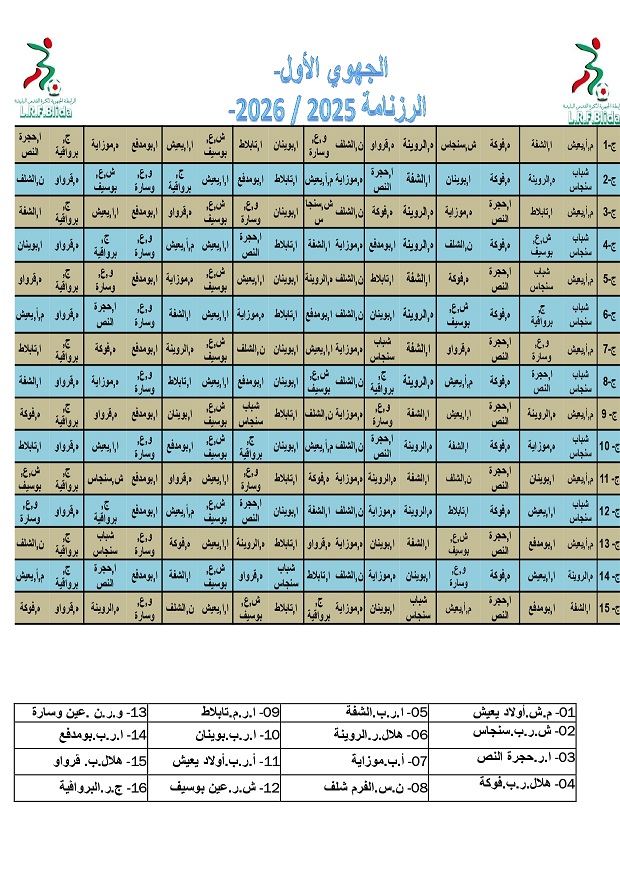 الجهوي الأول-
الرزنامة 2025 / 2026-
L.R.F.Blida
L.R.F.Blida
ج-1 م,أ,يعيش ا,الشفة ه,فوكة ش,سنجاس ه,الروينة ه,قرواو ن,الشلف و,ع,وسارة ا,بوينان ا,تابلاط ش,ع,بوسيف ا,ا,يعيش ا,بومدفع ه,موزاية ج,برواقية ا,حجرة النص
ج-2 شباب سنجاس ه,الروينة ه,فوكة ا,بوينان ا,الشفة ا,حجرة النص ه,موزاية م,أ,يعيش ا,تابلاط ا,بومدفع ا,ا,يعيش ج,برواقية و,ع,وسارة ش,ع,بوسيف ه,قرواو ن,الشلف
ج-3 م,أ,يعيش ا,تابلاط ا,حجرة النص ه,موزاية ه,الروينة ه,فوكة ن,الشلف ش,سنجاس ا,بوينان و,ع,وسارة ش,ع,بوسيف ه,قرواو ا,بومدفع ا,ا,يعيش ج,برواقية ا,الشفة
ج-4 شباب سنجاس ش,ع,بوسيف ه,فوكة ن,الشلف ه,الروينة ا,بومدفع ه,موزاية ا,الشفة ا,تابلاط ا,حجرة النص ا,ا,يعيش م,أ,يعيش و,ع,وسارة ج,برواقية ه,قرواو ا,بوينان
ج-5 م,أ,يعيش شباب سنجاس ا,حجرة النص ه,فوكة ا,الشفة ا,تابلاط ن,الشلف ه,الروينة ا,بوينان ا,ا,يعيش ش,ع,بوسيف ه,موزاية ا,بومدفع و,ع,وسارة ج,برواقية ه,قرواو
ج-6 شباب سنجاس ج,برواقية ه,فوكة ش,ع,بوسيف ه,الروينة ا,بوينان ن,الشلف ا,بومدفع ا,تابلاط ه,موزاية ا,ا,يعيش ا,الشفة و,ع,وسارة ا,حجرة النص ه,قرواو م,أ,يعيش
ج-7 م,أ,يعيش و,ع,وسارة ا,حجرة النص ه,قرواو ا,الشفة شباب سنجاس ه,موزاية ا,ا,يعيش ا,بوينان ن,الشلف ش,ع,بوسيف ه,الروينة ا,بومدفع ه,فوكة ج,برواقية ا,تابلاط
ج-8 شباب سنجاس ا,حجرة النص ه,فوكة م,أ,يعيش ه,الروينة ج,برواقية ن,الشلف ش,ع,بوسيف ا,بوينان ا,بومدفع ا,ا,يعيش ا,تابلاط و,ع,وسارة ه,موزاية ه,قرواو ا,الشفة
ج- 9 م,أ,يعيش ه,الروينة ا,حجرة النص ا,ا,يعيش ا,الشفة و,ع,وسارة ه,موزاية ن,الشلف ا,تابلاط شباب سنجاس ش,ع,بوسيف ا,بوينان ا,بومدفع ه,قرواو ج,برواقية ه,فوكة
ج- 10 شباب سنجاس ه,موزاية ه,فوكة ا,الشفة ه,الروينة ا,حجرة النص ن,الشلف م,أ,يعيش ا,بوينان ج,برواقية ش,ع,بوسيف ا,بومدفع و,ع,وسارة ا,ا,يعيش ه,قرواو ا,تابلاط
ج- 11 م,أ,يعيش ا,بوينان ا,حجرة النص ن,الشلف ا,الشفة ه,الروينة ه,موزاية ه,فوكة ا,تابلاط و,ع,وسارة ا,ا,يعيش ه,قرواو ا,بومدفع ش,سنجاس ج,برواقية ش,ع,بوسيف
ج- 12 شباب سنجاس ا,ا,يعيش ه,فوكة ا,تابلاط ه,الروينة ه,موزاية ن,الشلف ا,الشفة ا,بوينان ا,حجرة النص ش,ع,بوسيف م,أ,يعيش ا,بومدفع ج,برواقية ه,قرواو و,ع,وسارة
ج- 13 م,أ,يعيش ا,بومدفع ا,حجرة النص ش,ع,بوسيف ا,الشفة ا,بوينان ه,موزاية ه,قرواو ا,تابلاط ه,الروينة ا,ا,يعيش ه,فوكة و,ع,وسارة شباب سنجاس ج,برواقية ن,الشلف
ج- 14 ه,الروينة ا,ا,يعيش ه,فوكة و,ع,وسارة ا,بوينان ه,موزاية ن,الشلف ا,تابلاط شباب سنجاس ه,قرواو ش,ع,بوسيف ا,الشفة ا,بومدفع ا,حجرة النص ج,برواقية م,أ,يعيش
ج- 15 ا,الشفة ا,بومدفع ا,حجرة النص م,أ,يعيش شباب سنجاس ا,بوينان ه,موزاية ج,برواقية ا,تابلاط ش,ع,بوسيف ا,ا,يعيش ن,الشلف و,ع,وسارة ه,الروينة ه,قرواو ه,فوكة
01- م.ش.أولاد يعيش 05- ا.ر.ب.الشفة 09- ا.ر.م.تابلاط 13- و.ر.ن .عين وسارة
02- ش.ر.ب.سنجاس 06- هلال.ر.الروينة 10- ا.ر.ب.بوينان 14- ا.ر.ب.بومدفع
03- ا.ر.حجرة النص 07- أ.ب.موزاية 11- أ.ر.ب.أولاد يعيش 15- هلال.ب. قرواو
04- هلال.ر.ب.فوكة 08- ن.س.الفرم شلف 12- ش.ر.عين بوسيف 16- ج.ر.البرواقية